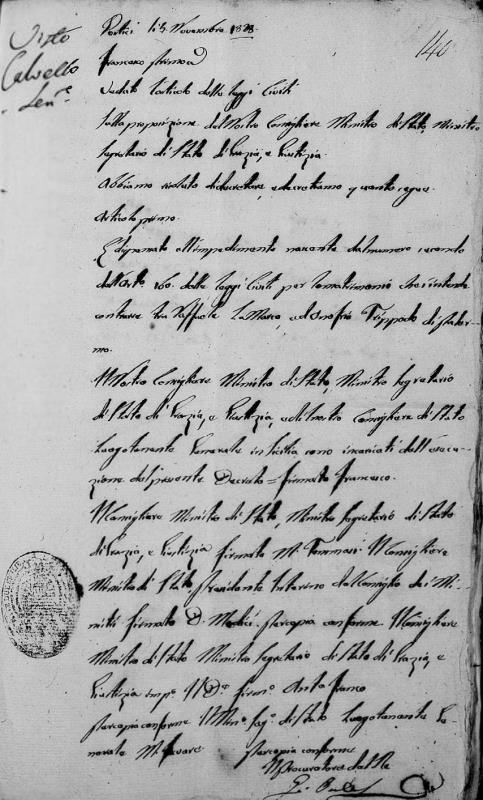 Visto
Calvello
Portici li 5. Novembre 1828.
140
Francesco Primo
Veduto l'articolo delle leggi Civili
Sulla proposizione del Nostro Consigliere Ministro di Stato, Ministro
Segretario di Stato di Grazia, e Giustizia.
Abbiamo risoluto di decretare, e decretiamo quanto segue.
Articolo primo.
E' dispensato all'impedimento nascente dal numero secondo
dell'Art.o 160. delle leggi Civili per lo matrimonio che s'intende
contrarre tra Raffaele La Marca, ed Onofria Trippodo di Paler-
mo.
Il Nostro Consigliere Ministro di Stato, Ministro Segretario
di Stato di Grazia, e Giustizia, ed il nostro Consigliere di Stato
Luogotenente Generale in Sicilia sono incaricati dell'esecu-
zione del presente Decreto = firmato Francesco.
Il Consigliere Ministro di Stato, Ministro Segretario di Stato
di Grazia, e Giustizia firmato M. Tommasi. Il Consigliere
Ministro di Stato, Presidente Interino del Consiglio de' Mi-
nistri firmato D. Medici. Per copia conforme Il Consigliere
Ministro di Stato Ministro Segretario di Stato di Grazia, e
Giustizia firm.o Anto Franco
Per copia conforme Il Min.o Seg.o di Stato Luogotenente Ge-
nerale M. Favare Per copia conforme
Il Procuratore del Re